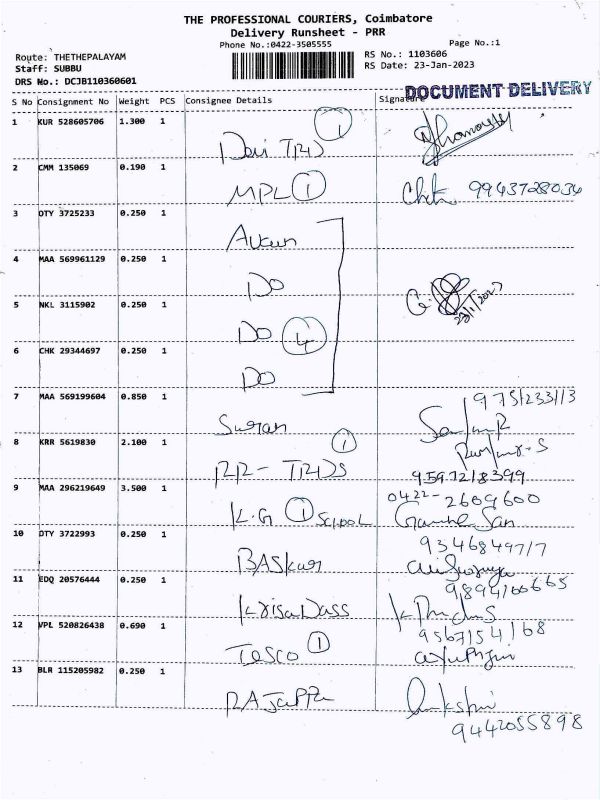 THE PROFESSIONAL COURIERS, Coimbatore
Delivery Runsheet - PRR
Phone No.:0422-3505555
Page No.:1
Route: THETHEPALAYAM
RS No.: 1103606
Staff: SUBBU
RS Date: 23-Jan-2023
DRS No.: DCJB110360601
DOCUMENT DELIVERY
S No Consignment No Weight PCS Consignee Details Signature
1 KUR 528605706 1.300 1
Devi TRDS 1
2 CMM 135069 0.190 1
MPL 1 9943728034
3 OTY 3725233 0.250 1
4 MAA 569961129 0.250 1
DO
5 NKL 3115902 0.250 1
23/1/2023
DO 4
6 CHK 29344697 0.250 1
DO
7 MAA 569199604 0.850 1
9751233113
8 KRR 5619830 2.100 1
1
RR - TRDS 9597218399
9 MAA 296219649 3.500 1
0422-2609600
K.G 1 School
10 OTY 3722993 0.250 1
9346849717
BASkar
11 EDQ 20576444 0.250 1
9894166665
KrisaDass
12 VPL 520826438 0.690 1
9567154168
Tesco 1
13 BLR 115205982 0.250 1
RAJappa
9442055898